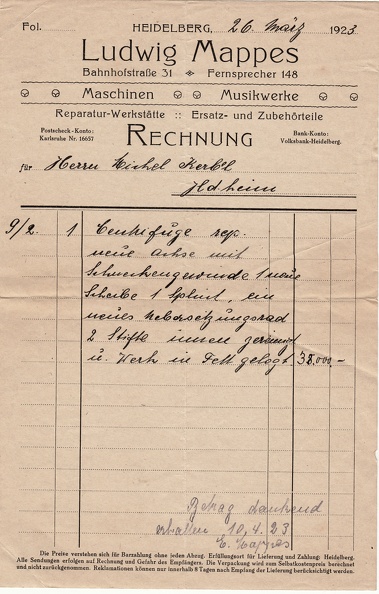 Fol.
HEIDELBERG, 26. März 1923.
Ludwig Mappes
Bahnhofstraße 31 Fernsprecher 148
Maschinen Musikwerke
Reparatur-Werkstätte :: Ersatz- und Zubehörteile
Postscheck-Konto: Karlsruhe Nr. 16657
RECHNUNG
Bank-Konto: Volksbank-Heidelberg.
für Herrn Michel
9/2. 1 Centrifuge rep.
neue Achse mit
Schneckengewinde 1 neue
Scheibe 1 Splint, ein
neues Uebersetzungsrad
2 Stifte innen
u. Werk in Fett gelegt 38,000.-
Betrag dankend
erhalten 10.4.23
E. Mappes
Die Preise verstehen sich für Barzahlung ohne jeden Abzug. Erfüllungsort für Lieferung und Zahlung: Heidelberg.
Alle Sendungen erfolgen auf Rechnung und Gefahr des Empfängers. Die Verpackung wird zum Selbstkostenpreis berechnet
und nicht zurückgenommen. Reklamationen können nur innerhalb 8 Tagen nach Empfang der Lieferung berücksichtigt werden.